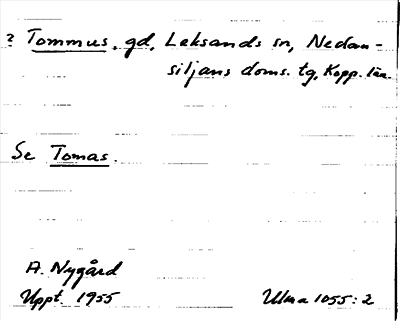 ? Tommus, gd, Leksands sn, Nedan-
siljans doms. tg, Kopp. län
Se Tomas.
A. Nygård
Uppt. 1955 Ulma 1055:2